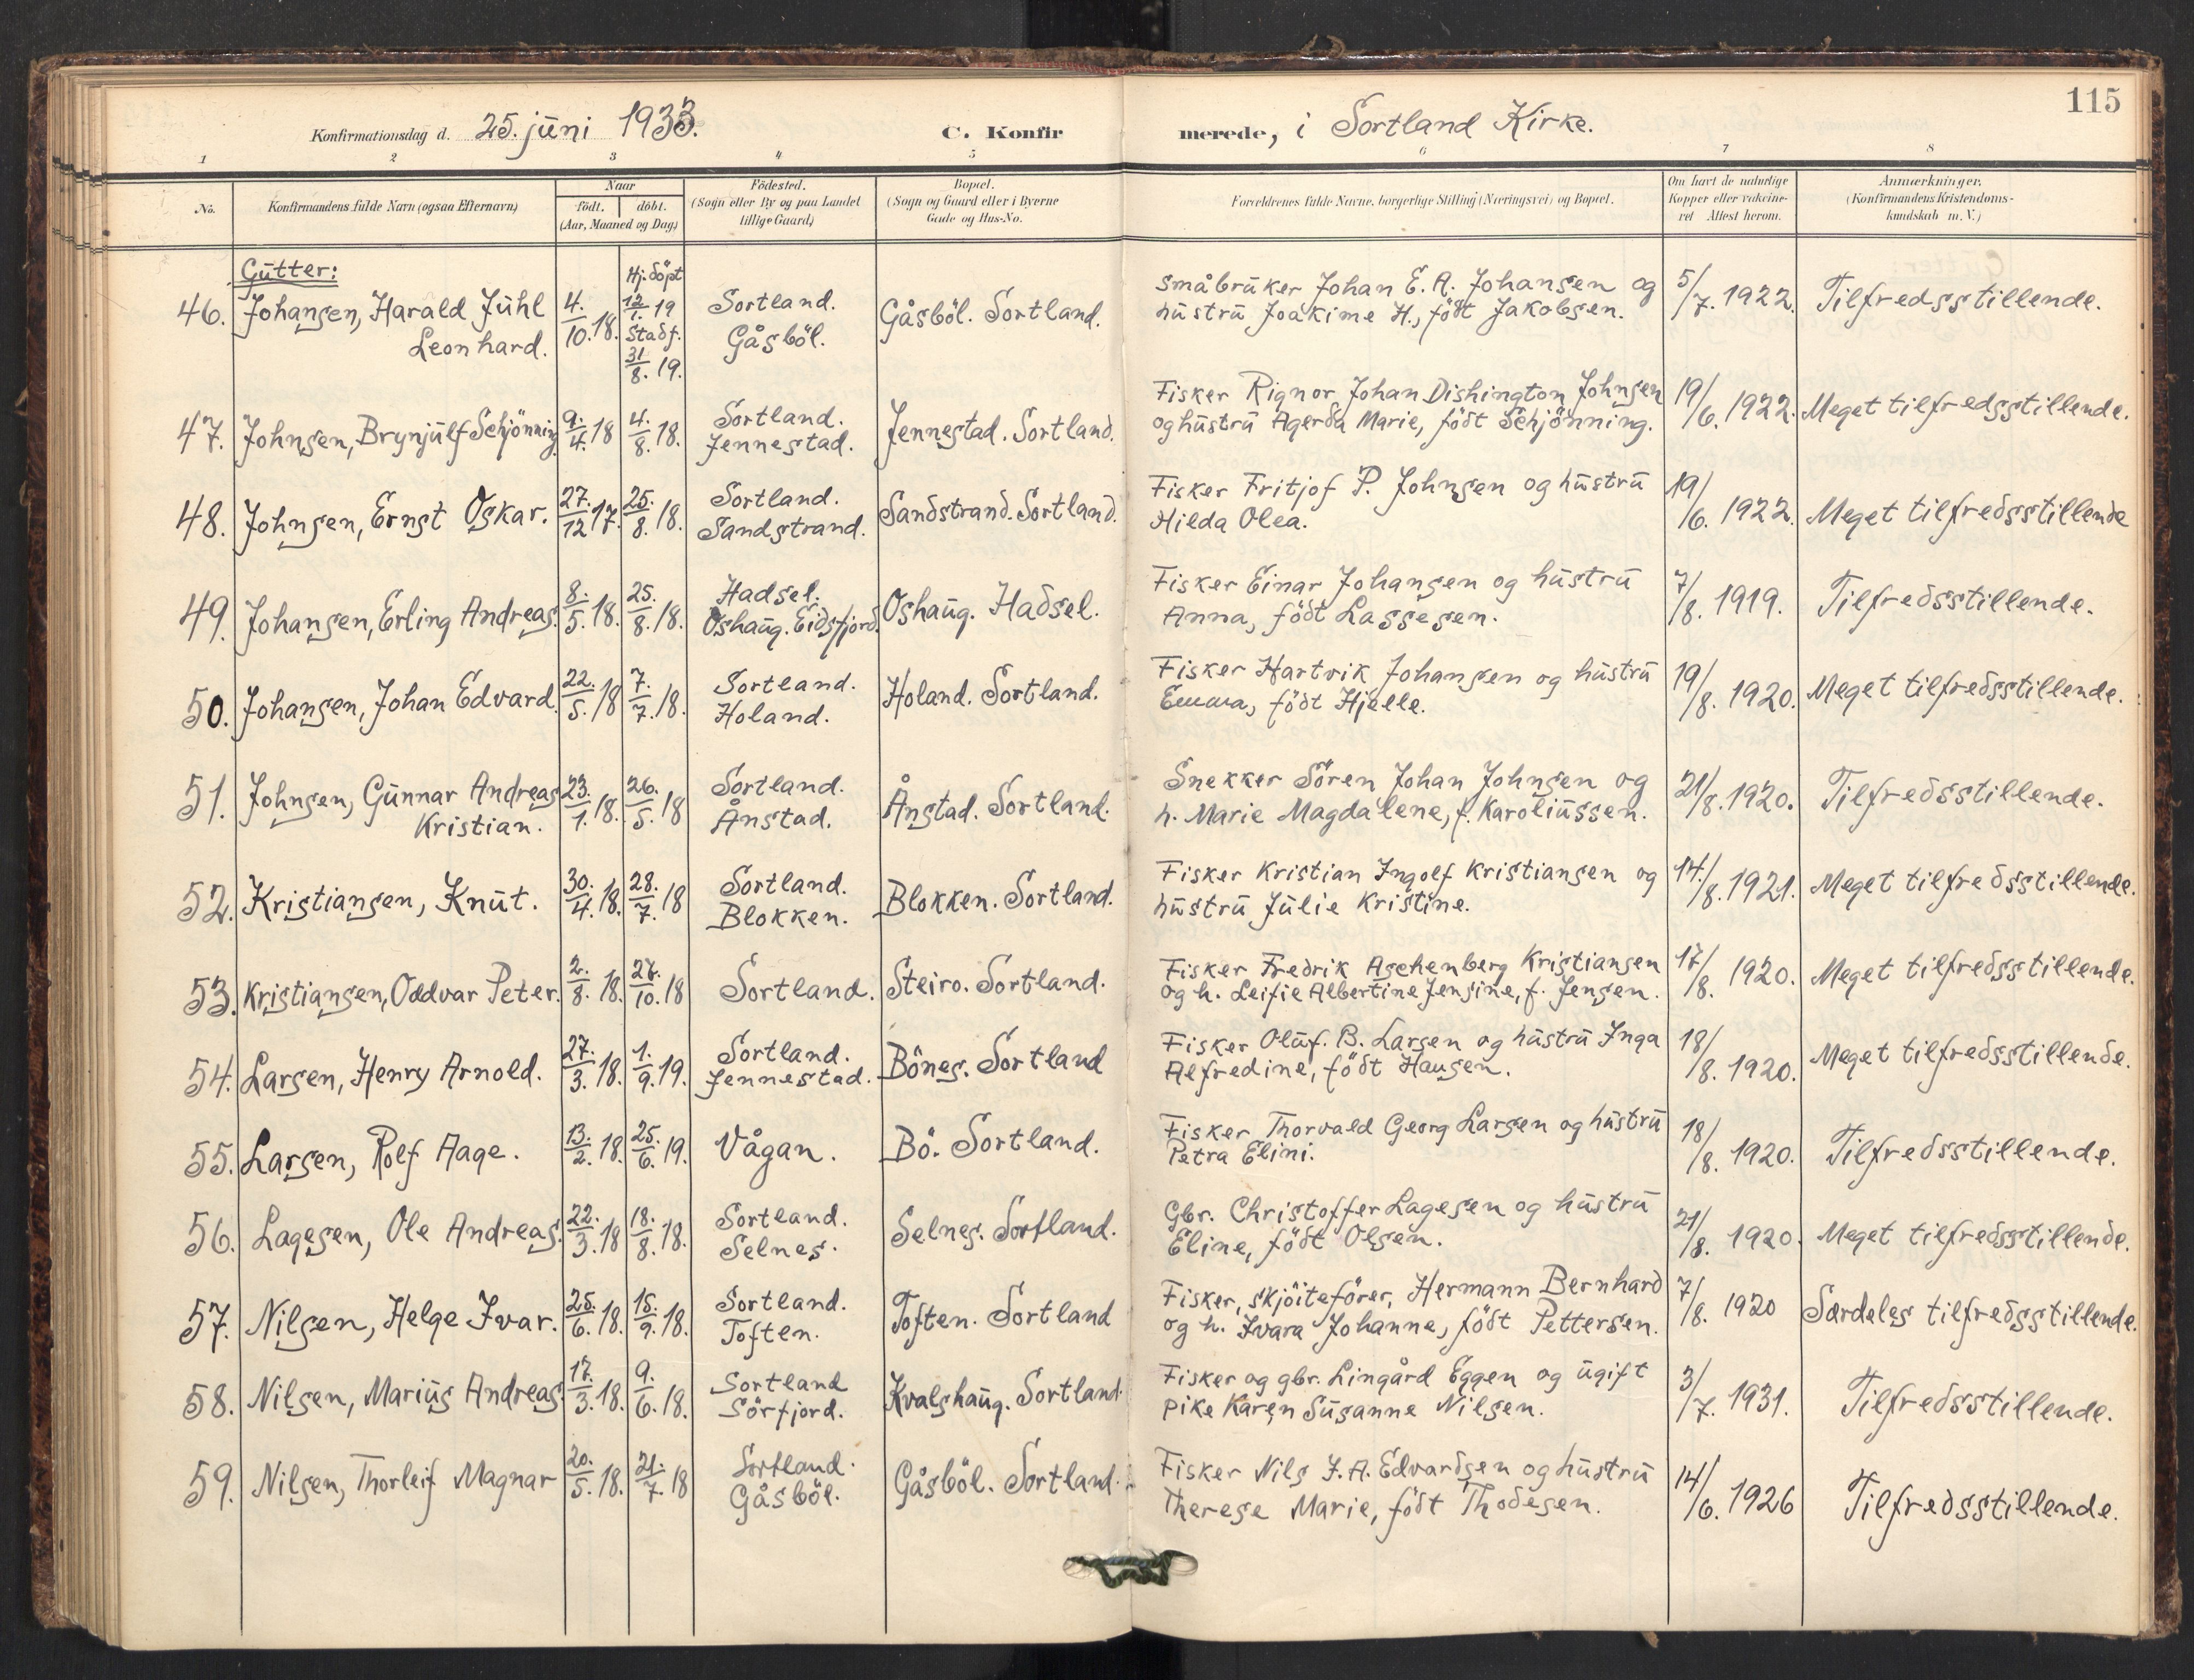 115
Konfirmationsdag d. 25. juni 1933. C. Konfirmerede, i Sortland Kirke.
1 2 3 4 5 6 7 8
No. Konfirmandens fulde Navn (ogsaa Efternavn) Naar født. døbt. (Aar, Maaned og Dag) Fødested. (Sogn eller By og paa Landet tillige Gaard) Bopæl. (Sogn og Gaard eller i Byerne Gade og Hus-No. Forældrenes fulde Navne, borgerlige Stilling (Næringsvei) og Bopæl. Om havt de naturlige Kopper eller vakcineret Attest herom. Anmærkninger. (Konfirmandens Kristendomskundskab m. V.)
Gutter:
46. Johansen, Harald Juhl Leonhard. 4./10. 18. Hj. döpt 12/1. 19 Stadf. 31/8. 19. Sortland. Gåsböl. Gåsböl. Sortland. Småbruker Johan E. A. Johansen og hustru Joakime H., födt Jakobsen. 5/7. 1922. Tilfredsstillende.
47. Johnsen, Brynjulf Schjönning 9./4. 18 4./8. 18. Sortland. Jennestad. Jennestad. Sortland. Fisker Rignor Johan Dishington Johnsen og hustru Agerda Marie, födt Schjönning. 19/6. 1922. Meget tilfredsstillende.
48. Johnsen, Ernst Oskar. 27./12 17. 25./8. 18. Sortland. Sandstrand. Sandstrand. Sortland. Fisker Fritjof P. Johnsen og hustru Hilda Olea. 19/6. 1922. Meget tilfredsstillende
49. Johansen, Erling Andreas. 8./5. 18. 25./8. 18. Hadsel. Oshaug. Eidsfjord. Oshaug. Hadsel. Fisker Einar Johansen og hustru Anna, födt Lassesen. 7/8. 1919. Tilfredsstillende.
50. Johansen, Johan Edvard. 22./5. 18 7./7. 18. Sortland. Holand. Holand. Sortland. Fisker Hartvik Johansen og hustru Emma, födt Hjelle. 19/8. 1920. Meget tilfredsstillende.
51. Johnsen, Gunnar Andreas Kristian. 23./1. 18. 26./5. 18 Sortland. Ånstad. Ånstad. Sortland. Snekker Sören Johan Johnsen og h. Marie Magdalene, f. Karoliussen. 21/8. 1920. Tilfredsstillende.
52. Kristiansen, Knut. 30./4. 18. 28./7. 18 Sortland. Blokken. Blokken. Sortland. Fisker Kristian Ingolf Kristiansen og hustru Julie Kristine. 14./8. 1921. Meget tilfredsstillende.
53. Kristiansen, Oddvar Peter. 2./8. 18. 27./10. 18 Sortland. Steiro. Sortland. Fisker Fredrik Aschenberg Kristiansen og h. Leifie Albertine Jensine, f. Jensen. 17/8. 1920. Meget tilfredsstillende.
54. Larsen, Henry Arnold. 27./3. 18. 1./9. 19. Sortland. Jennestad. Bönes. Sortland Fisker Oluf. B. Larsen og hustru Inga Alfredine, födt Hansen. 18/8. 1920. Meget tilfredsstillende.
55. Larsen, Rolf Aage. 13./2. 18. 25./6. 19. Vågan. Bö. Sortland. Fisker Thorvald Georg Larsen og hustru Petra Elini. 18/8. 1920. Tilfredsstillende.
56. Lagesen, Ole Andreas. 22./3. 18 18./8. 18. Sortland. Selnes. Selnes. Sortland. Gbr. Christoffer Lagesen og hustru Eline, födt Olsen. 21/8. 1920. Meget tilfredsstillende.
57. Nilsen, Helge Ivar. 25./6. 18. 15./9. 18. Sortland. Toften. Toften. Sortland Fisker, skjöiteförer, Hermann Bernhard og h. Ivara Johanne, födt Pettersen. 7/8. 1920 Særdeles tilfredsstillende.
58. Nilsen, Marius Andreas. 17./3. 18. 9./6. 18. Sortland Sörfjord. Kvalshaug. Sortland. Fisker og gbr. Lingård Eggen og ugift pike Karen Susanne Nilsen. 3/7. 1931. Tilfredsstillende.
59. Nilsen, Thorleif Magnar 20./5. 18. 21./7. 18 Sortland. Gåsböl. Gåsböl. Sortland. Fisker Nils J. A. Edvardsen og hustru Therese Marie, födt Thodesen. 14/6. 1926 Tilfredsstillende.